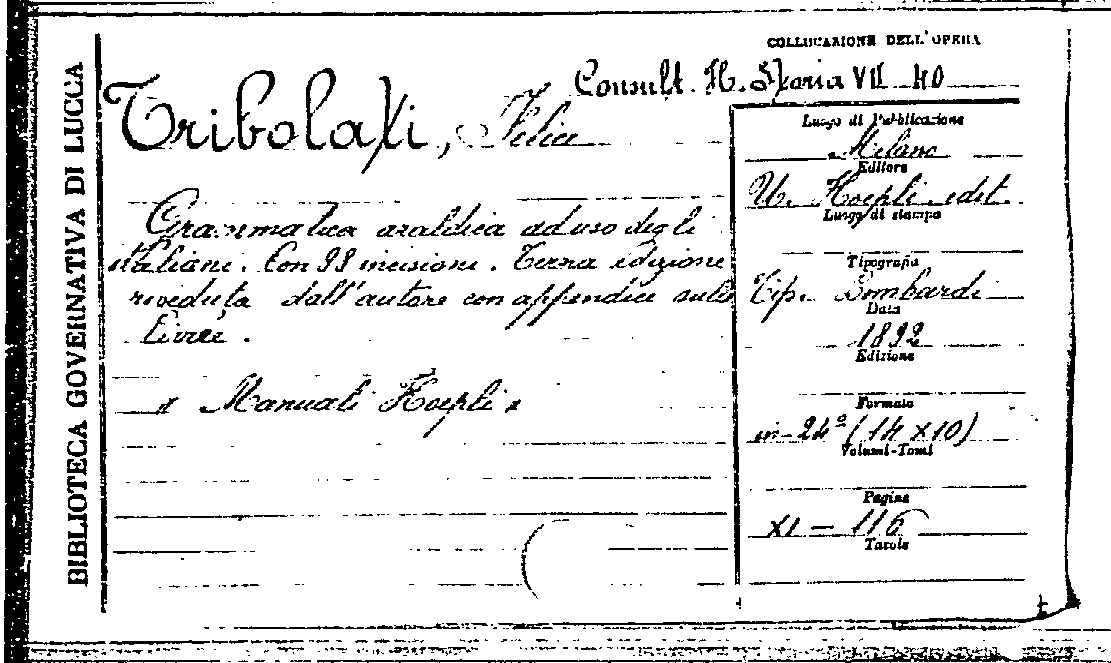 BIBLIOTECA GOVERNATIVA DI LUCCA
COLLOCAZIONE DELL'OPERA
Consult. H. Storia VII 40
Tribolati, Felice
Grammatica araldica ad uso degli
italiani. Con 98 incisioni. Terza edizione
riveduta dall'autore con appendice sulle
livree.
« Manuali Hoepli »
Luogo di Pubblicazione
Milano
Editore
U. Hoepli edit.
Luogo di stampa
Tipografia
Tip. Lombardi
Data
1892
Edizione
Formato
in-24° (14 x 10)
Volumi-Tomi
Pagine
XI — 116
Tavole